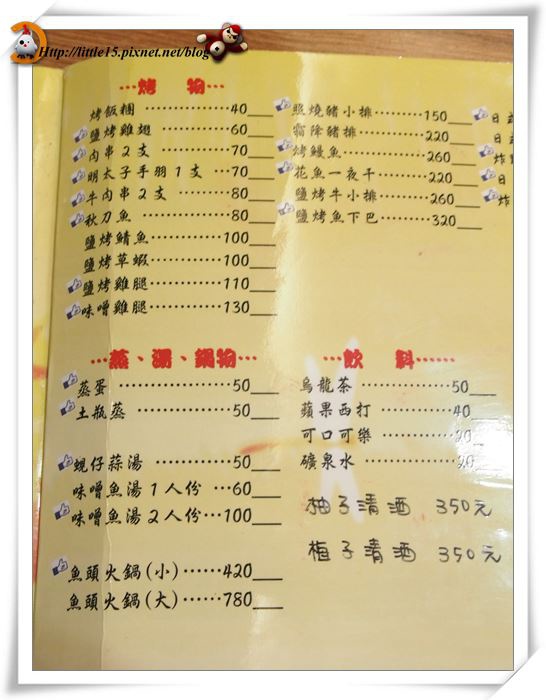 Http://little15.pixnet.net/blog
…烤　物…
烤飯糰 …………… 40
鹽烤雞翅 ………… 60
肉串2支 ………… 70
明太子手羽1支 … 70
牛肉串2支 ……… 80
秋刀魚 …………… 80
鹽烤鯖魚………… 100
鹽烤草蝦………… 100
鹽烤雞腿………… 110
味噌雞腿………… 130
照燒豬小排……… 150
霜降豬排………… 220
烤鰻魚…………… 260
花魚一夜干……… 220
鹽烤牛小排……… 260
鹽烤魚下巴……… 320
日
日
炸
日
炸
…蒸、湯、鍋物…
蒸蛋 ……………… 50
土瓶蒸 …………… 50
蜆仔蒜湯 ………… 50
味噌魚湯1人份 … 60
味噌魚湯2人份… 100
魚頭火鍋(小)…… 420
魚頭火鍋(大)…… 780
…飲　料……
烏龍茶 …………… 50
蘋果西打 ………… 40
可口可樂 ………… 20
礦泉水 …………… 20
柚子清酒 350元
梅子清酒 350元